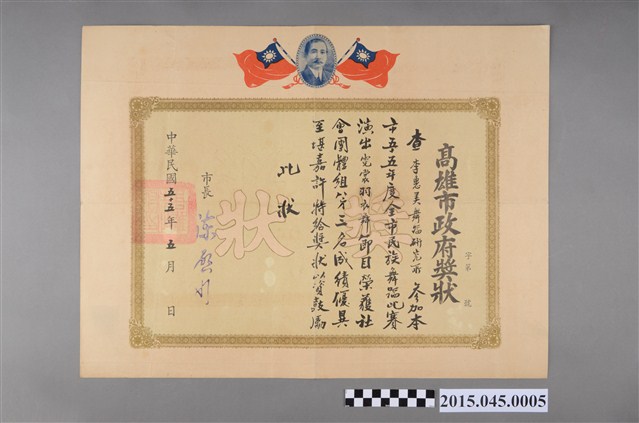 高雄市政府獎狀
字第 號
查李惠美舞蹈研究所參加本
市五五年度全市民族舞蹈比賽
演出霓裳羽衣舞節目榮獲社
會團體組第三名成績優異
至堪嘉許特給獎狀以資鼓勵
此狀
市長 陳啟川
中華民國五十五年五月 日
獎狀
2015.045.0005